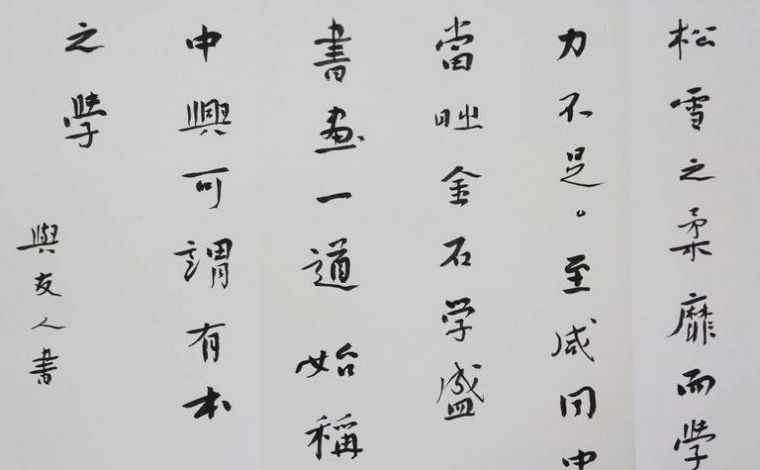 松雪之柔靡而學
力不足。至咸同中
當時金石学盛
書畫一道始稱
中興可謂有本
之學
與友人書